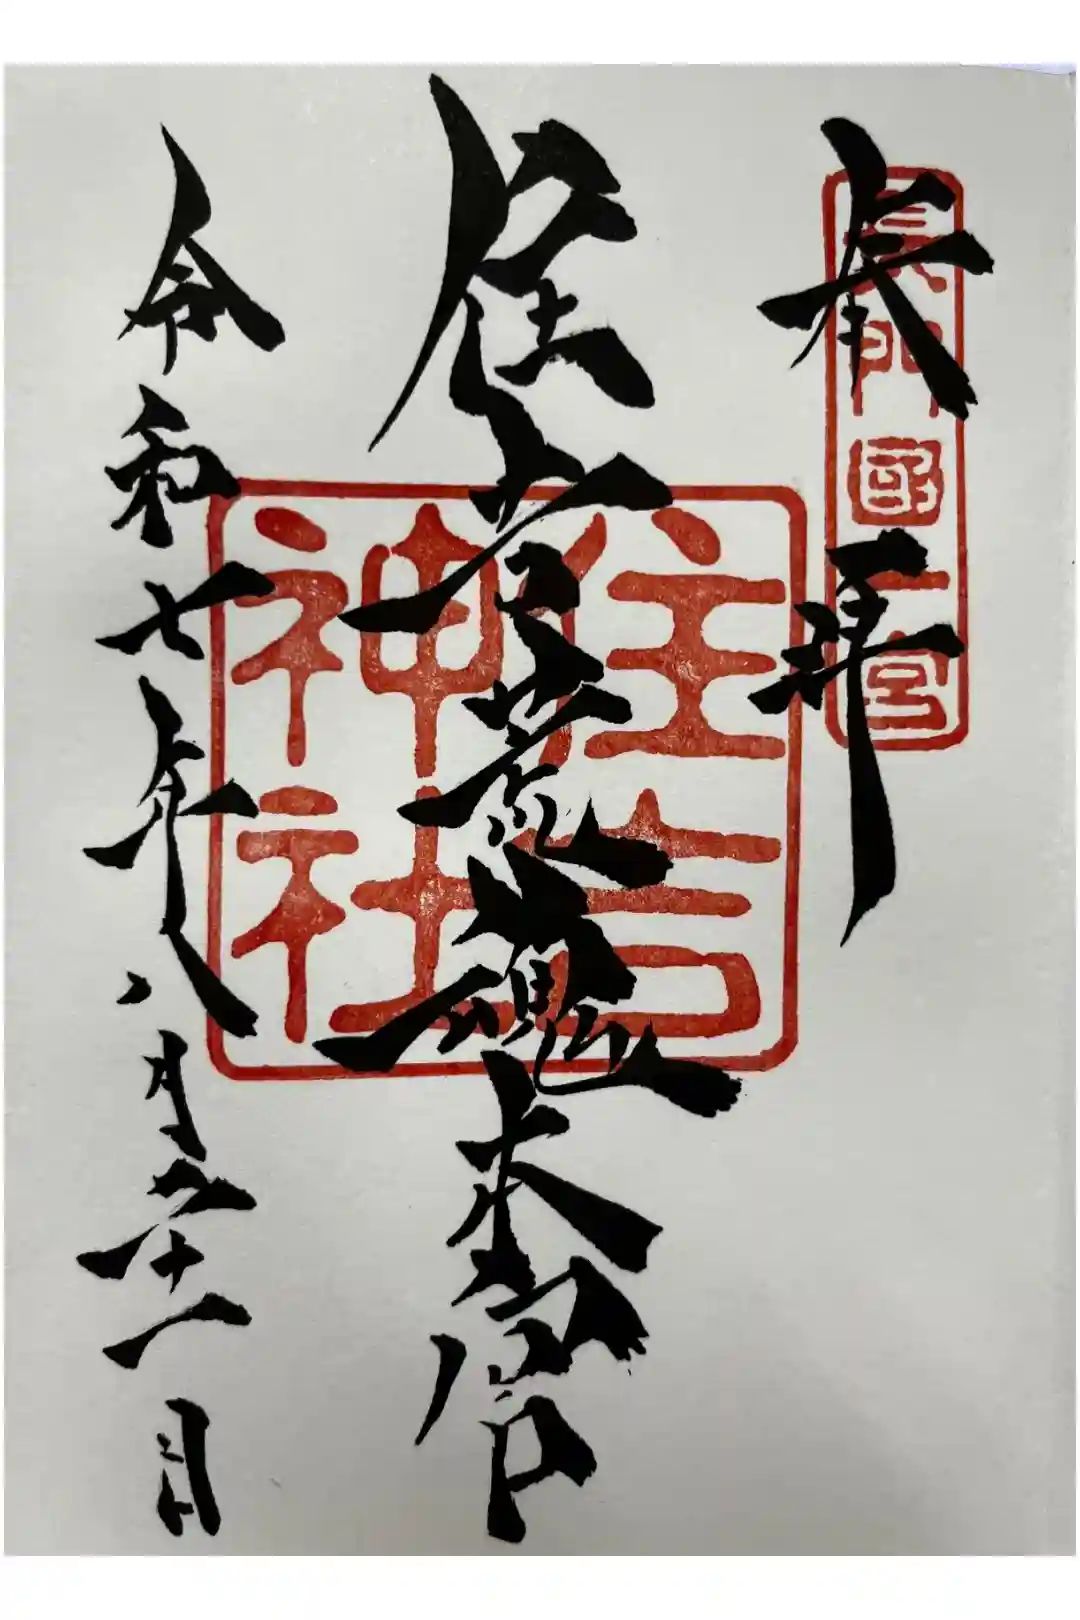 奉拝
長門國一宮
住吉荒魂本宮
住吉
神社
令和七年八月二十一日